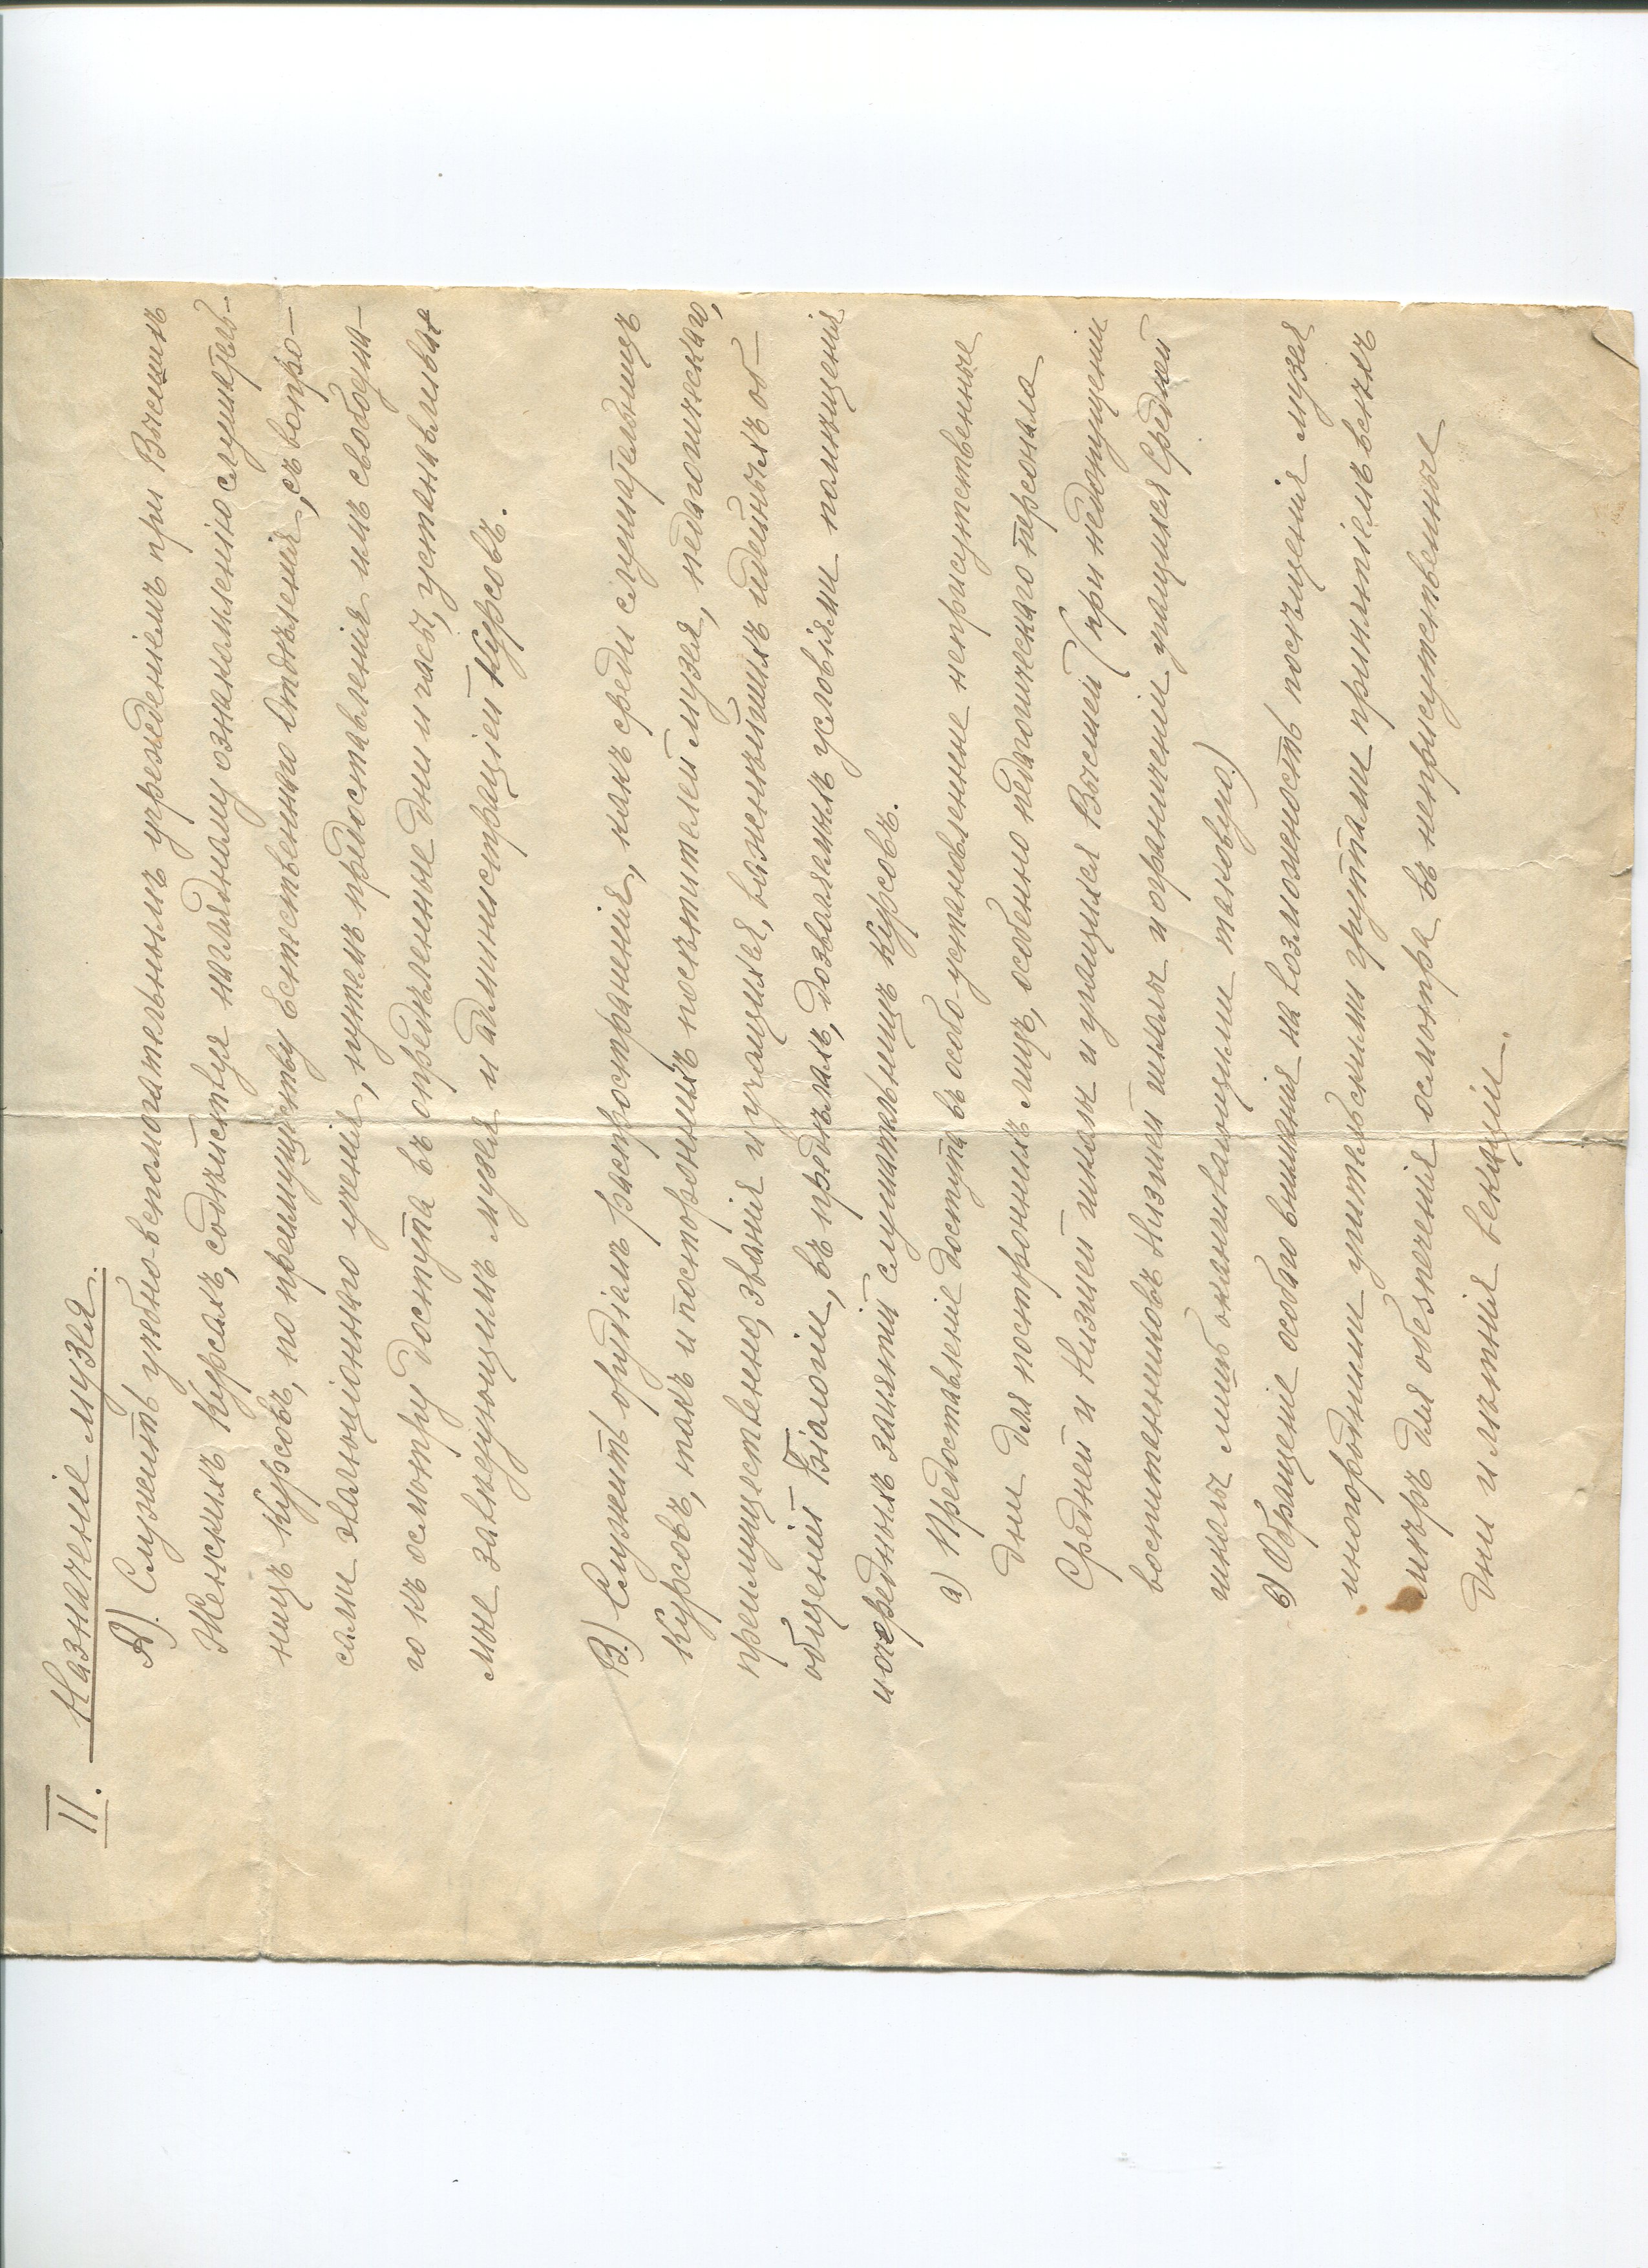 II. Назначеніе музея.
А). Служить учебно-вспомогательнымъ учрежденіемъ при Высшихъ
Женскихъ Курсахъ, содѣйствуя наглядному ознакомленію слушатель-
ницъ Курсовъ, по преимуществу Естественнаго Отдѣленія, съ вопро-
сами эволюціоннаго ученія, путемъ предоставленія имъ свободна-
го къ осмотру доступа въ опредѣленные дни и часы, устанавливае-
мые завѣдующимъ музея и администраціей Курсовъ.
В.) Служить орудіемъ распространенія, какъ среди слушательницъ
Курсовъ, такъ и постороннихъ посѣтителей музея, педагогическаго,
преимущественно, званія и учащихся, важнѣйшихъ идейныхъ об-
общеній Біологіи, въ предѣлахъ, дозваляемыхъ условіями помѣщенія
и очередныхъ занятій слушательницъ Курсовъ.
а) Предоставленіе доступа въ особо-установленные неприсутственные
дни для постороннихъ лицъ, особенно педагогическаго персонала
Средней и Низшей школы и учащихся Высшей (при недопущеніи
воспитанниковъ Низшей школы и ограниченіи учащихся Средней
школы лишь оканчивающими таковую.)
в) Обращеніе особаго вниманія на возможность посѣщенія музея
иногородними учительскими группами принятіемъ всѣхъ
мѣръ для обезпеченія осмотра въ неприсутственные
дни и лѣтнія вакаціи.